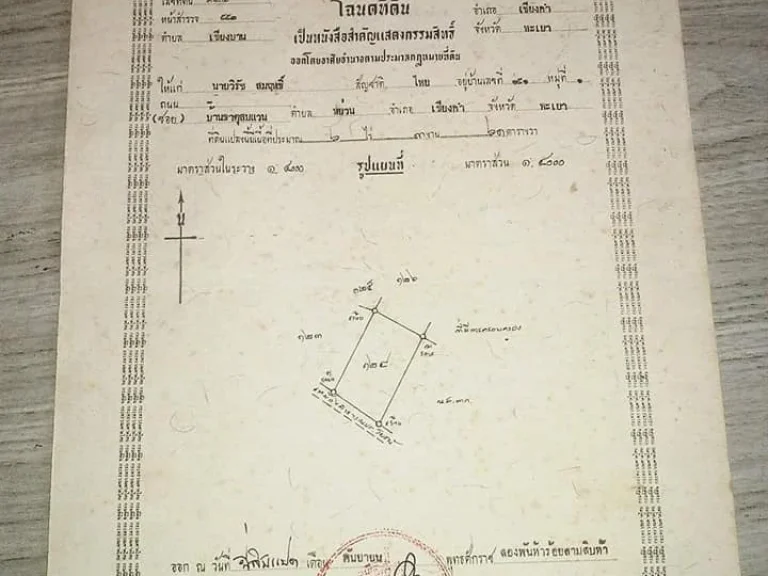 โฉนดที่ดิน
อำเภอ เชียงคำ
หน้าสำรวจ
ตำบล เชียงบาน
เป็นหนังสือสำคัญแสดงกรรมสิทธิ์
จังหวัด พะเยา
ออกโดยอาศัยอำนาจตามประมวลกฎหมายที่ดิน
ให้แก่ นายวิรัช สมฤทธิ์ สัญชาติ ไทย อยู่บ้านเลขที่ หมู่ที่ ๑
ถนน
(ซอย) บ้านธาตุสบแวน ตำบล หย่วน อำเภอ เชียงคำ จังหวัด พะเยา
ที่ดินแปลงนี้มีเนื้อที่ประมาณ ๒ ไร่ ๓ งาน ๒๑ ตารางวา
มาตราส่วนในระวาง ๑: ๔๐๐๐ รูปแผนที่ มาตราส่วน ๑:
น
๑๒๕ ๑๒๖
๑๒๓
๑๒๔
น.ส.๓ก.
ออก ณ วันที่ ยี่สิบแปด เดือน กันยายน พุทธศักราช สองพันห้าร้อยสามสิบห้า